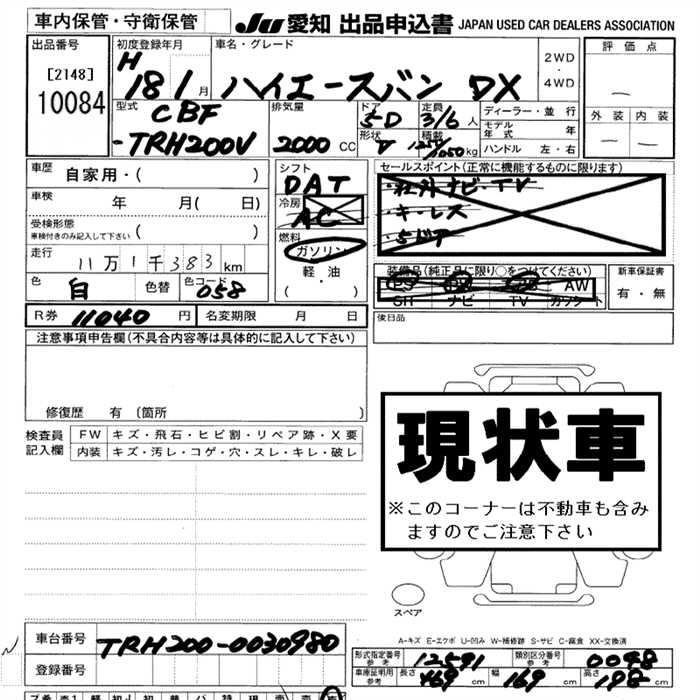 車内保管・守衛保管
JU 愛知 出品申込書 JAPAN USED CAR DEALERS ASSOCIATION
出品番号
[2148]
10084
初度登録年月
H 18 1月
車名・グレード
ハイエースバン DX
2WD・4WD
評価点
外装 内装
型式
CBF
-TRH200V
排気量
2000 CC
ドア
5D
形状
V
定員
3/6人
積載
kg
ディーラー・並行
モデル年式 年
ハンドル 左・右
車歴 自家用・( )
車検 年 月( 日)
受検形態
車検付きのみ記入して下さい ( )
走行 11万1千383km
色 白 色替 色コード 058
シフト
DAT
冷房
AC
燃料
ガソリン
軽・油
( )
セールスポイント(正常に機能するものに限ります)
・社外ナビ・TV
・キーレス
・5ドア
装備品(純正品に限り○をつけてください)
AW
ナビ TV カセット
新車保証書
有・無
R券 11040円 名変期限 月 日
後日品
注意事項申告欄(不具合内容等は具体的に記入して下さい)
修復歴 有 〔箇所 〕
検査員記入欄
FW キズ・飛石・ヒビ割・リペア跡・X要
内装 キズ・汚レ・コゲ・穴・スレ・キレ・破レ
現状車
※このコーナーは不動車も含み
ますのでご注意下さい
スペア
A-キズ E-エクボ U-凹み W-補修跡 S-サビ C-腐食 XX-交換済
車台番号 TRH200-0030980
登録番号
形式指定番号 参考 12591 類別区分番号 参考 0048
車庫証明用 参考 長さ 469 cm 幅 169 cm 高さ 198 cm